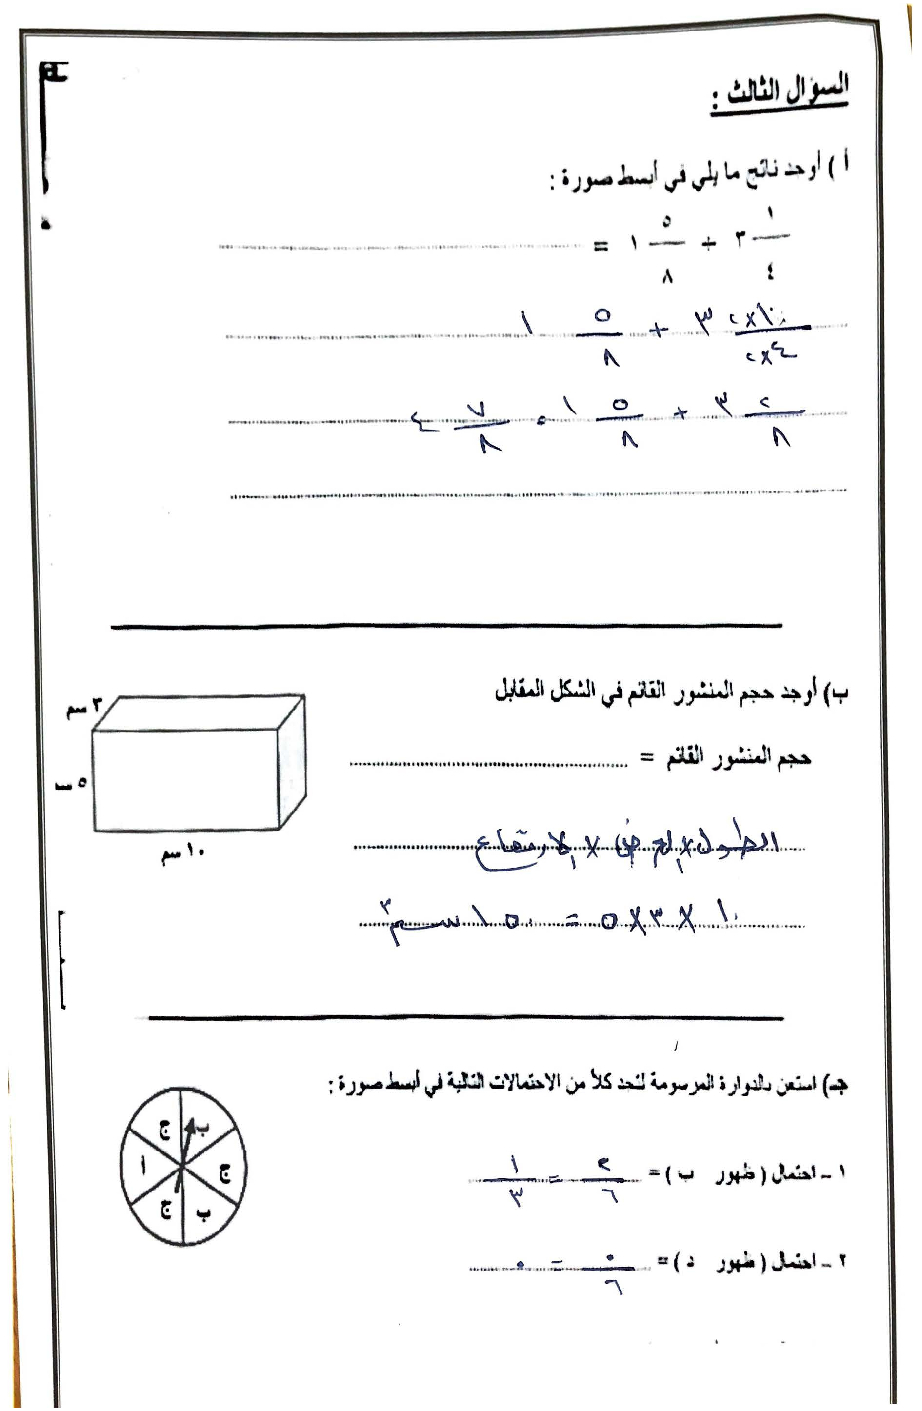 السؤال الثالث :
أ ) أوجد ناتج ما يلي في أبسط صورة :
٣ ١/٤ + ١ ٥/٨ =
٣ ١×٢/٤×٢ + ١ ٥/٨
٣ ٢/٨ + ١ ٥/٨ = ٤ ٧/٨
ب) أوجد حجم المنشور القائم في الشكل المقابل
٣ سم
حجم المنشور القائم =
٥ سم
الطول × العرض × الارتفاع
١٠ سم
١٠ × ٣ × ٥ = ١٥٠ سم٣
جـ) استعن بالدوارة المرسومة لتجد كلاً من الاحتمالات التالية في أبسط صورة :
ج ب
أ ج
ج ب
١ ـ احتمال ( ظهور ب ) = ٢/٦ = ١/٣
٢ ـ احتمال ( ظهور د ) = ٠/٦ = ٠